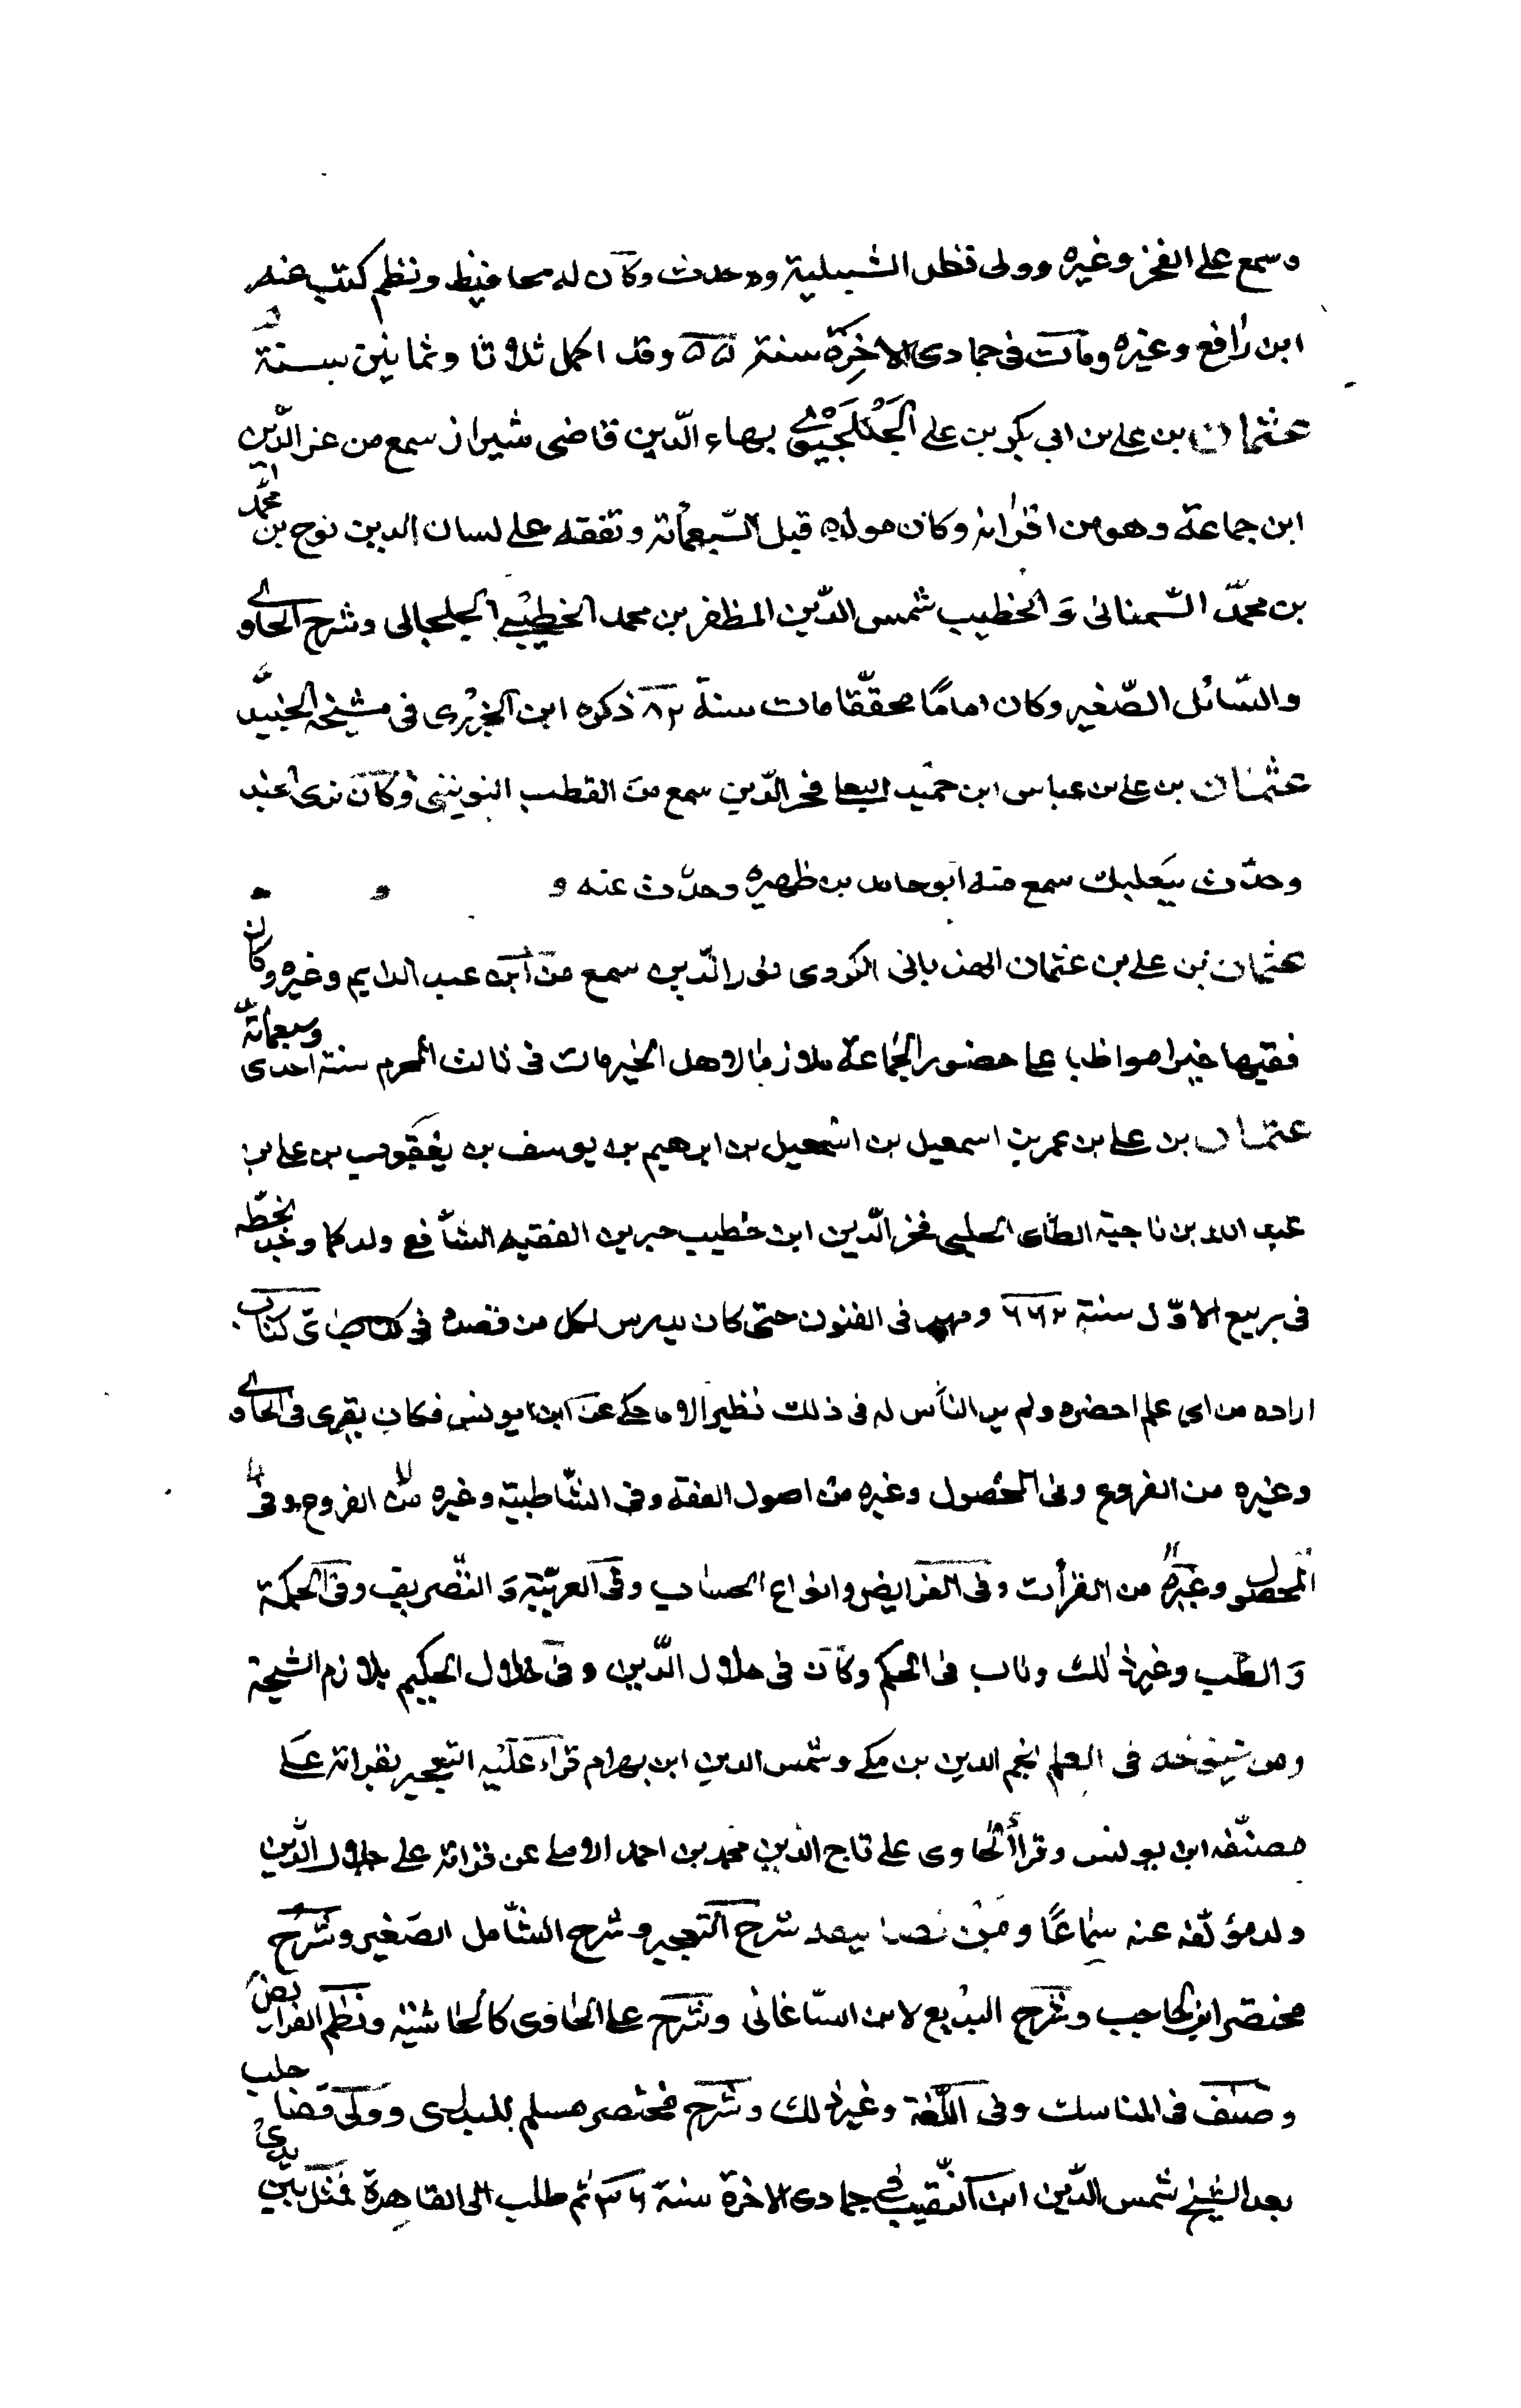 وسمع على الفخر وغيره وولى نظر الشبيلية وحدث وكان له محافيظ ونظم كتب عنه
ابن رافع وغيره ومات فى جمادى الاخرة سنة ٥٥ وقد اكمل ثلاثا وثمانين سنة
عثمان بن على بن ابى بكر بن على بهاء الدّين قاضى شيراز سمع من عز الدّين
ابن جماعة وهو من اقرانه وكان مولده قبل السّبعمائة وتفقه على لسان الدين نوح بن محمّد
بن محمّد السّمنانى وَالخطيب شمس الدّين المظفر بن محمد الخطيبى الخلخالى وشرح الحاوى
والسّائل الصّغير وكان امامًا محقّقا مات سنة ٨٢ ذكره ابن الجزرى فى مشيخة الجنيد
عثمان بن على بن عباس ابن حميد فخر الدّين سمع من القطب اليونينى وكان
وحدّث ببعلبك سمع منه ابو حامد بن ظهيرة وحدّث عنه و
عثمان بن على بن عثمان الهذبانى الكردى نور الدّين سمع من ابن عبد الدايم وغيره وكان
فقيها خيرا مواظبا على حضور الجماعة ملازما لاهل الخير مات فى ثالث المحرم سنة احدى وسبعمائة
عثمان بن على بن عمر بن اسمعيل بن اسمعيل بن ابرهيم بن يوسف بن يعقوب بن على بن
عبد الله بن ناجية الطائى الحلبى فخر الدّين ابن خطيب جبرين الفقيه الشافعى ولد كما وجد بخطّه
فى ربيع الاوّل سنة ٦٦٢ ومهر فى الفنون حتى كان يدرس لكل من قصده فى اىّ كتاب
اراده من اى علم احضره ولم ير الناس له فى ذلك نظيرا الا ما حكى عن ابن يونس فكان يقرى فى الحاوى
وغيره من الفروع وفى المحصول وغيره من اصول الفقه وفى الشّاطبية وغيره من الفروع وفى
المحصول وغيره من القرأت وفى الفرايض وانواع الحساب وفى العربيّة وَالتّصريف وفى الحكمة
وَالطب وغير ذلك وناب فى الحكم وكان فى خلال الدّين وفى خلال الحكم يلازم الشيحة
ومن شيوخه فى العلم نجم الدين بن مكى وشمس الدين ابن بهرام قراء عليه التعجيز بقرائته على
مصنّفه ابن يونس وقرأ الحاوى على تاج الدين محمد بن احمد الاملى عن قرائته على جلال الدّين
ولد مؤلفه عنه سماعًا ومن شرح التعجيز وشرح الشّامل الصّغير وشرح
مختصر ابن الحاجب وشرح البديع لابن السّاعاتى وشرح على الحاوى كالحاشية ونظم الفرايض
وصنف فى المناسك وفى اللّغة وغير ذلك وشرح مختصر مسلم للمنذرى وولى قضا حلب
بعد الشيخ شمس الدّين ابن النّقيب فى جمادى الاخرة سنة ٣٦ ثم طلب الى القاهرة فمثل بين يدى